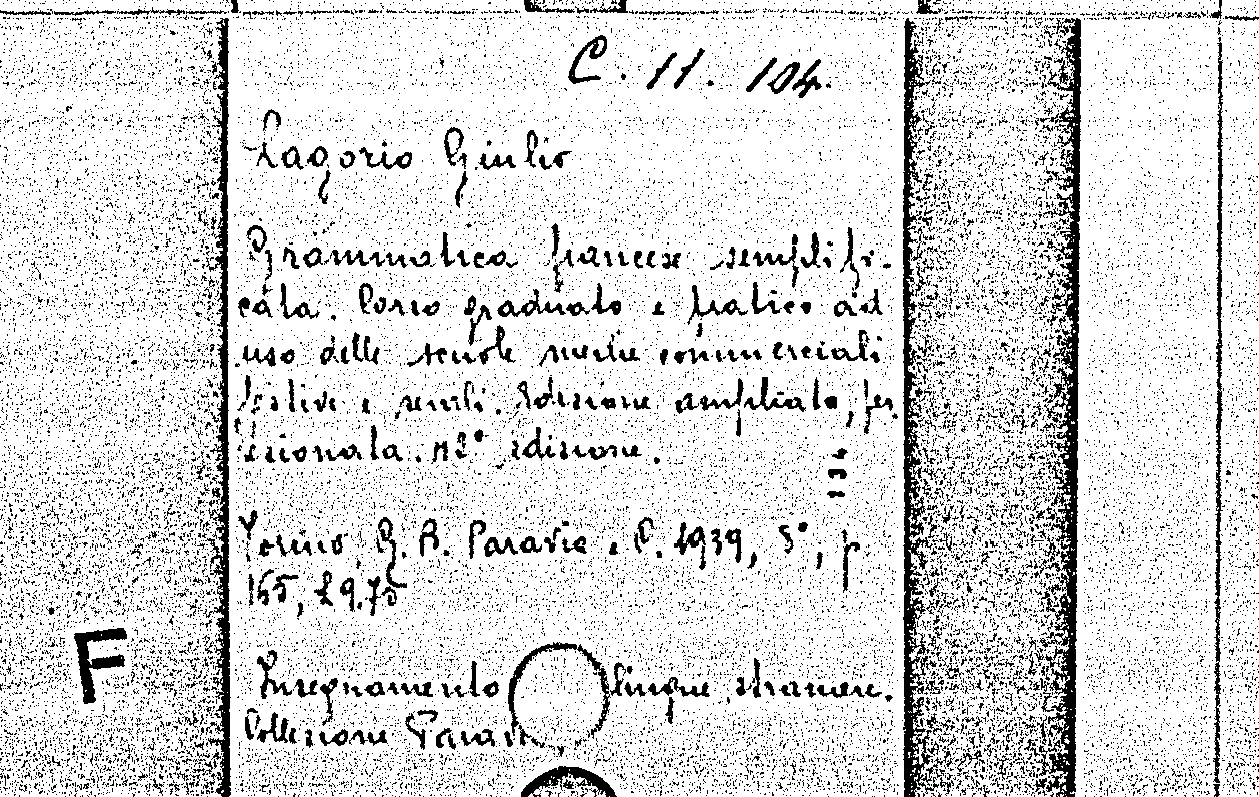 C. 11. 104.
Lagorio Giulio
Grammatica francese semplifi-
cata. Corso graduato e pratico ad
uso delle scuole medie commerciali
festive e serali. Edizione ampliata, per
ezionata. 12° edizione.
Torino G. B. Paravia e C. 1939, 8°, p
165, £ 9.75
F
Insegnamento lingue straniere.
Collezione Parav